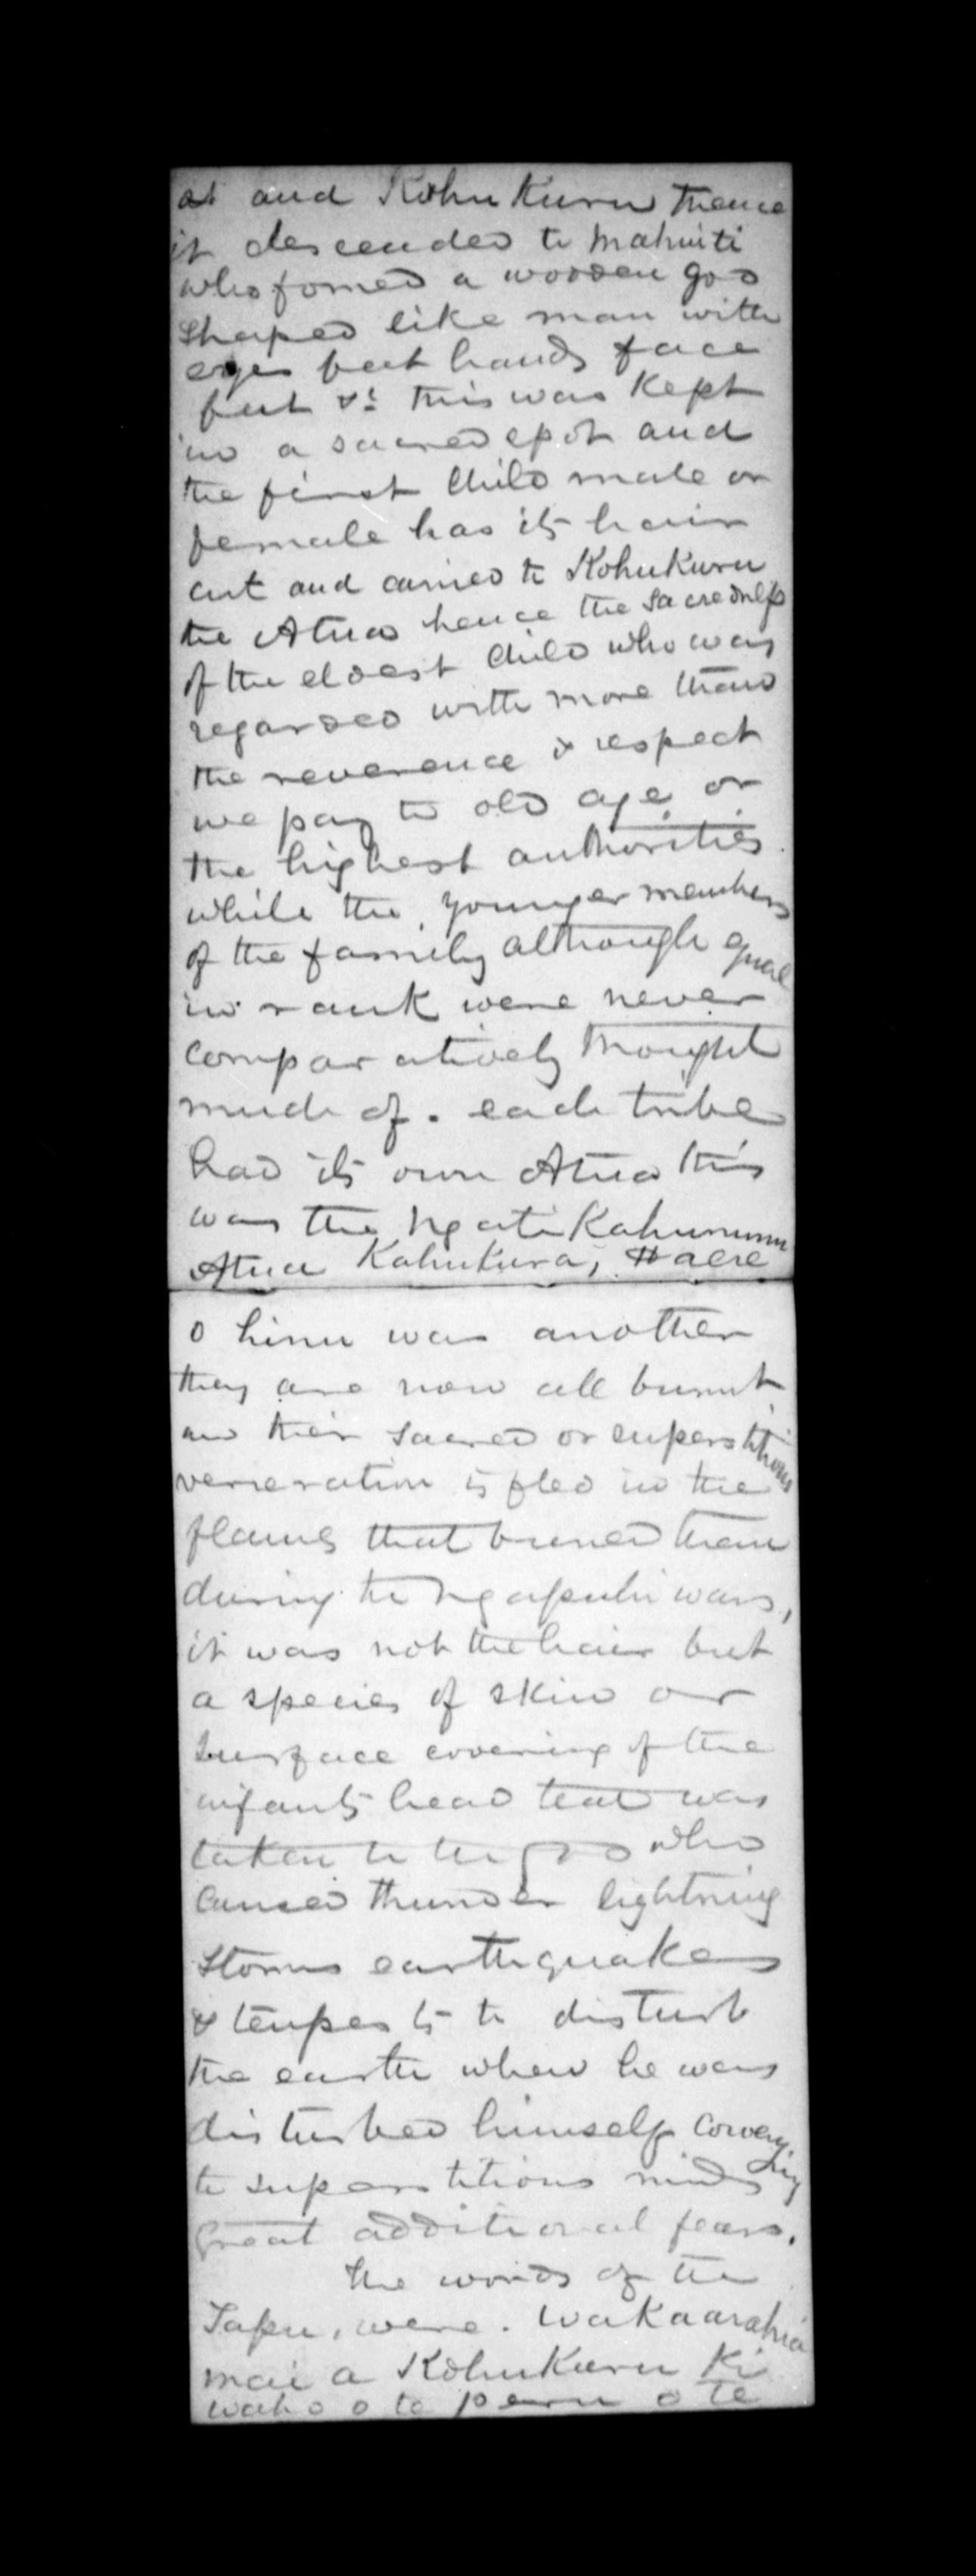 at and Kohukuru thence
it descended to Mahuiti
who fomed a wooden god
shaped like man with
eyes feet hands face
feet &c this was kept
in a sacred spot and
the first child male or
female has its hair
cut and carried to Kohukuru
the Atua hence the sacredness
of the eldest child who was
regarded with more than
the reverence & respect
we pay to old age or
the highest authorities
while the younger members
of the family although equal
in rank were never
comparatively thought
much of. each tribe
had its own Atua this
was the Ngati Kahununu
Atua Kahukura, Haere
o hinu was another
they are now all burnt
and their sacred or superstitious
veneration is fled in the
flames that burned them
during the Ngapuhi wars,
it was not the hair but
a species of skin or
surface covering of the
infants head that was
taken to the god who
caused thunder lightning
storms earthquakes
& tempests to disturb
the earth when he was
disturbed himself conveying
to superstitious minds
great additional fears.
the words of the
Tapu, were. Wakaarahia
mai a Kohukuru ki
waho o te peru o te